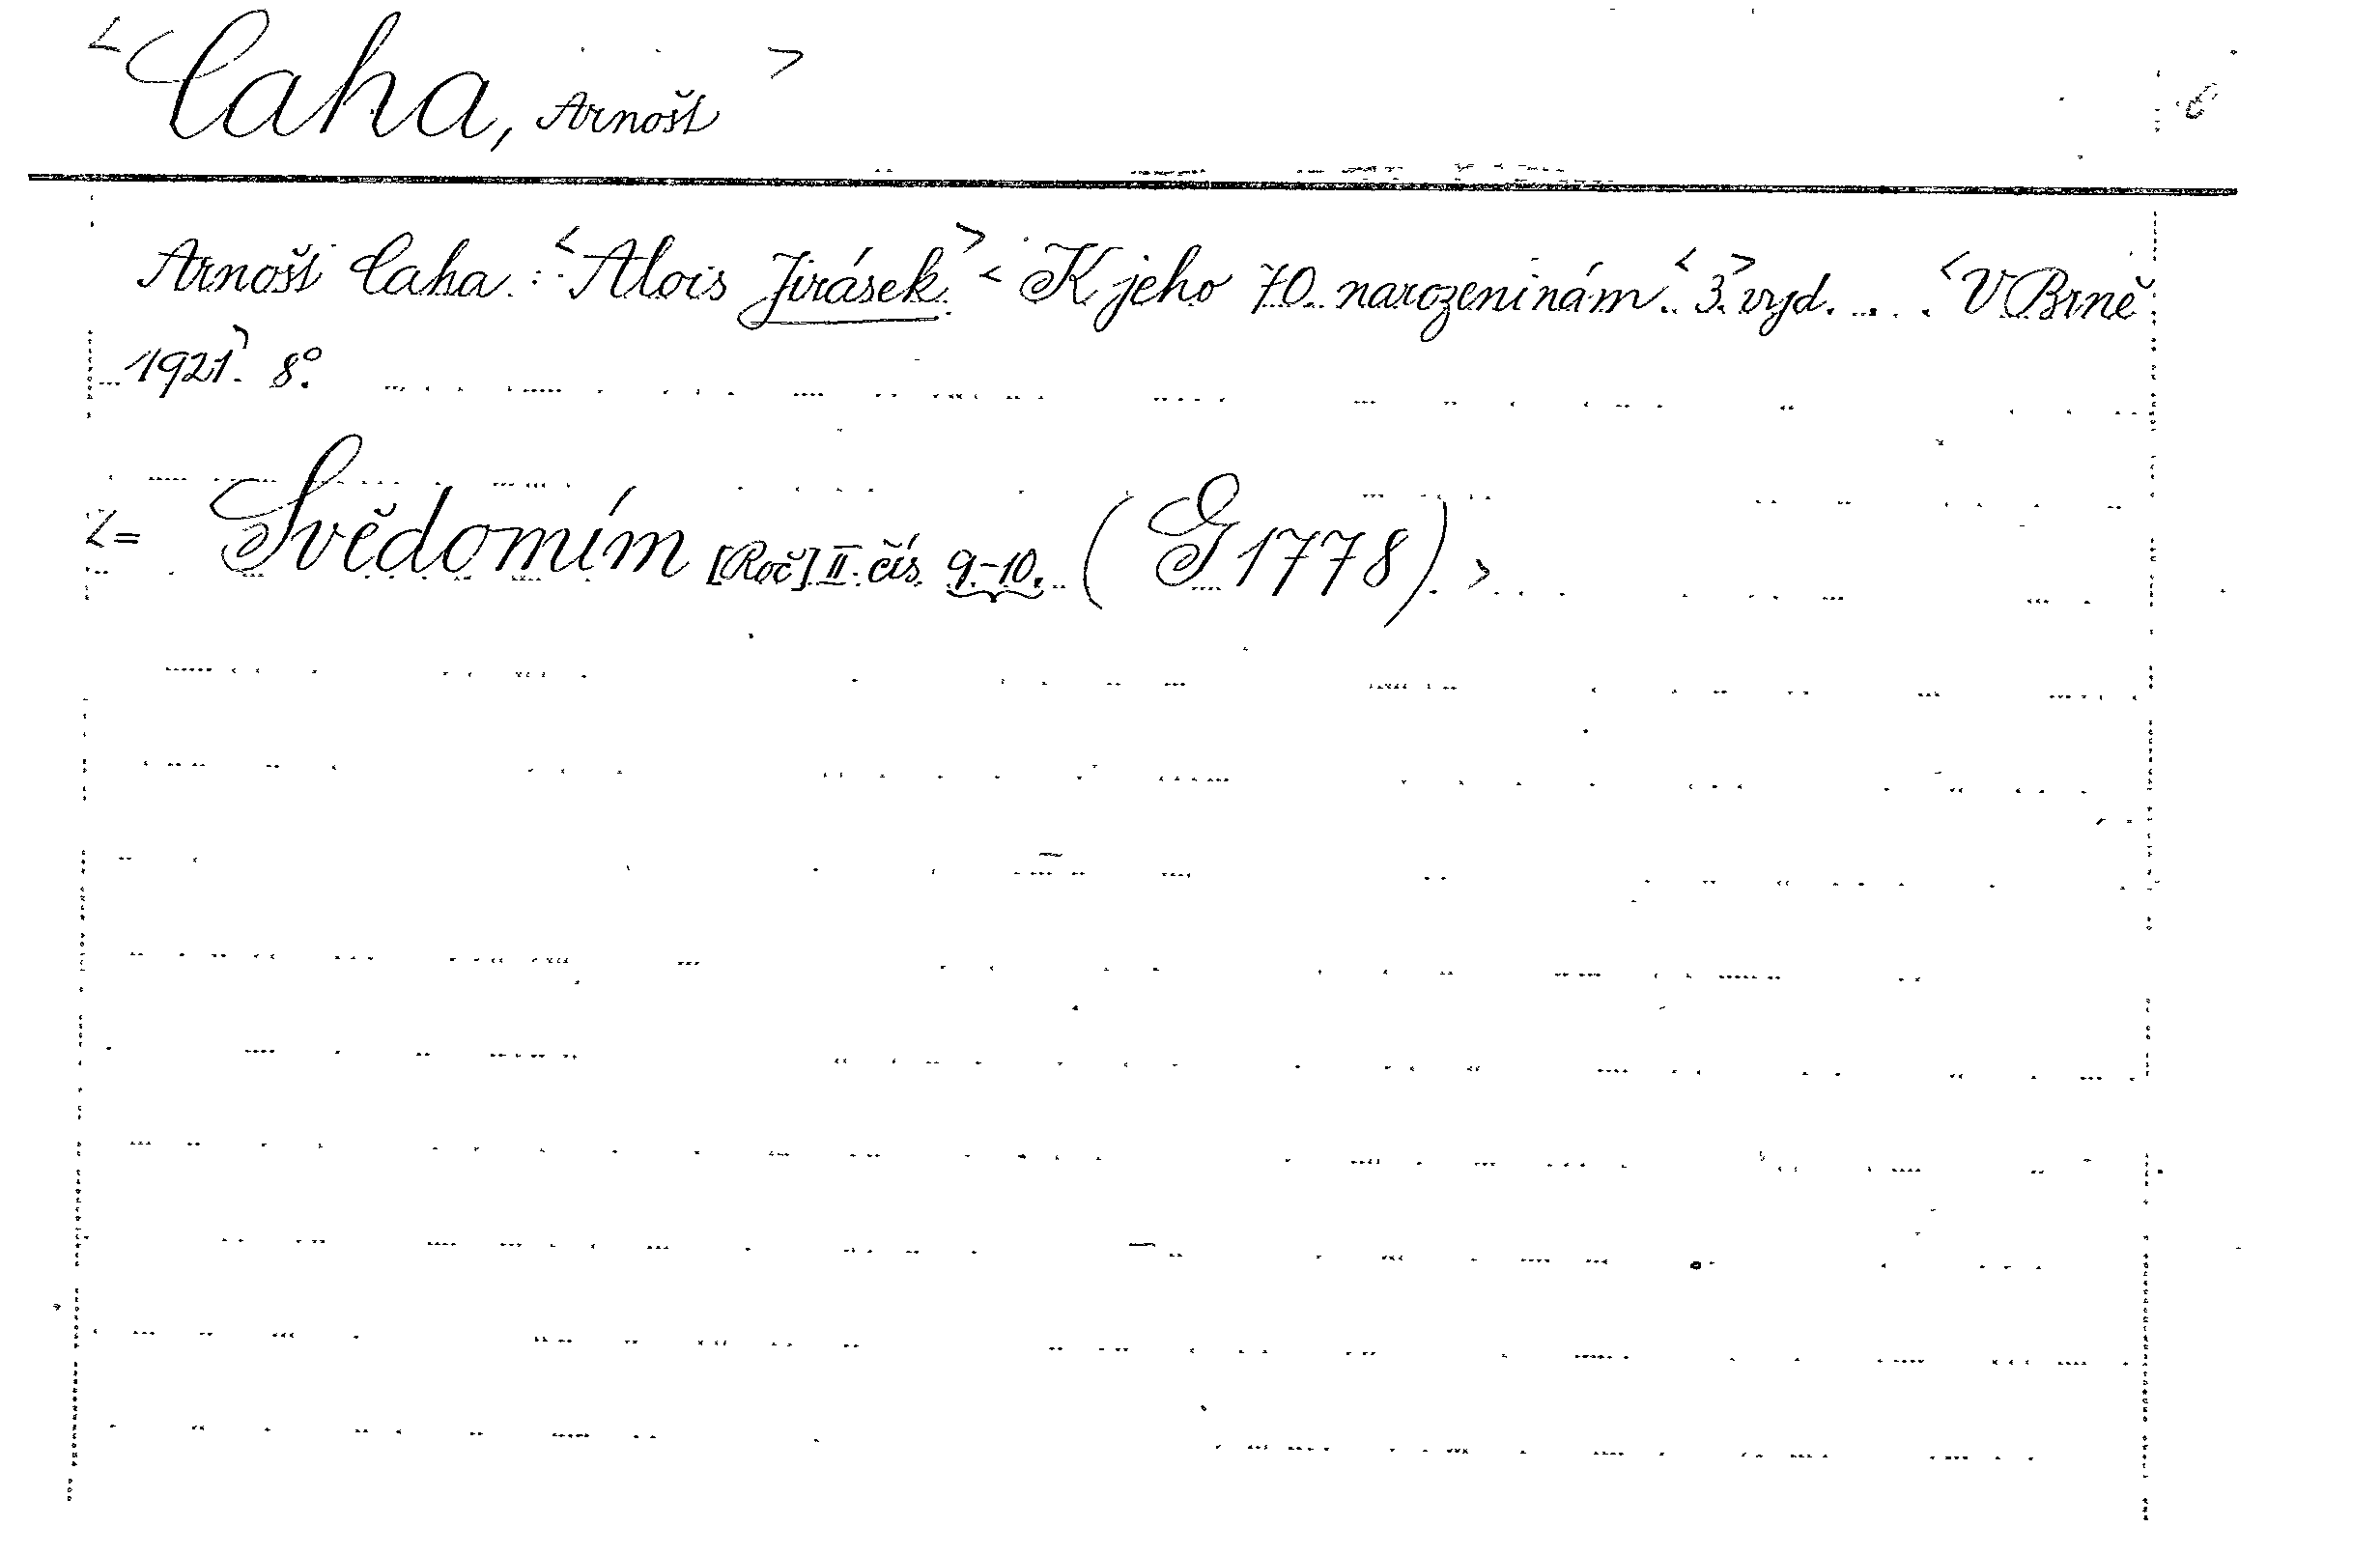 <Caha, Arnošt>
Arnošt Caha: <Alois Jirásek.> <K jeho 70. narozeninám. <3.> vyd. .... <V Brně
1921>. 8°.
<= Svědomím [Roč] II. čís. 9.-10. (G 1778).>